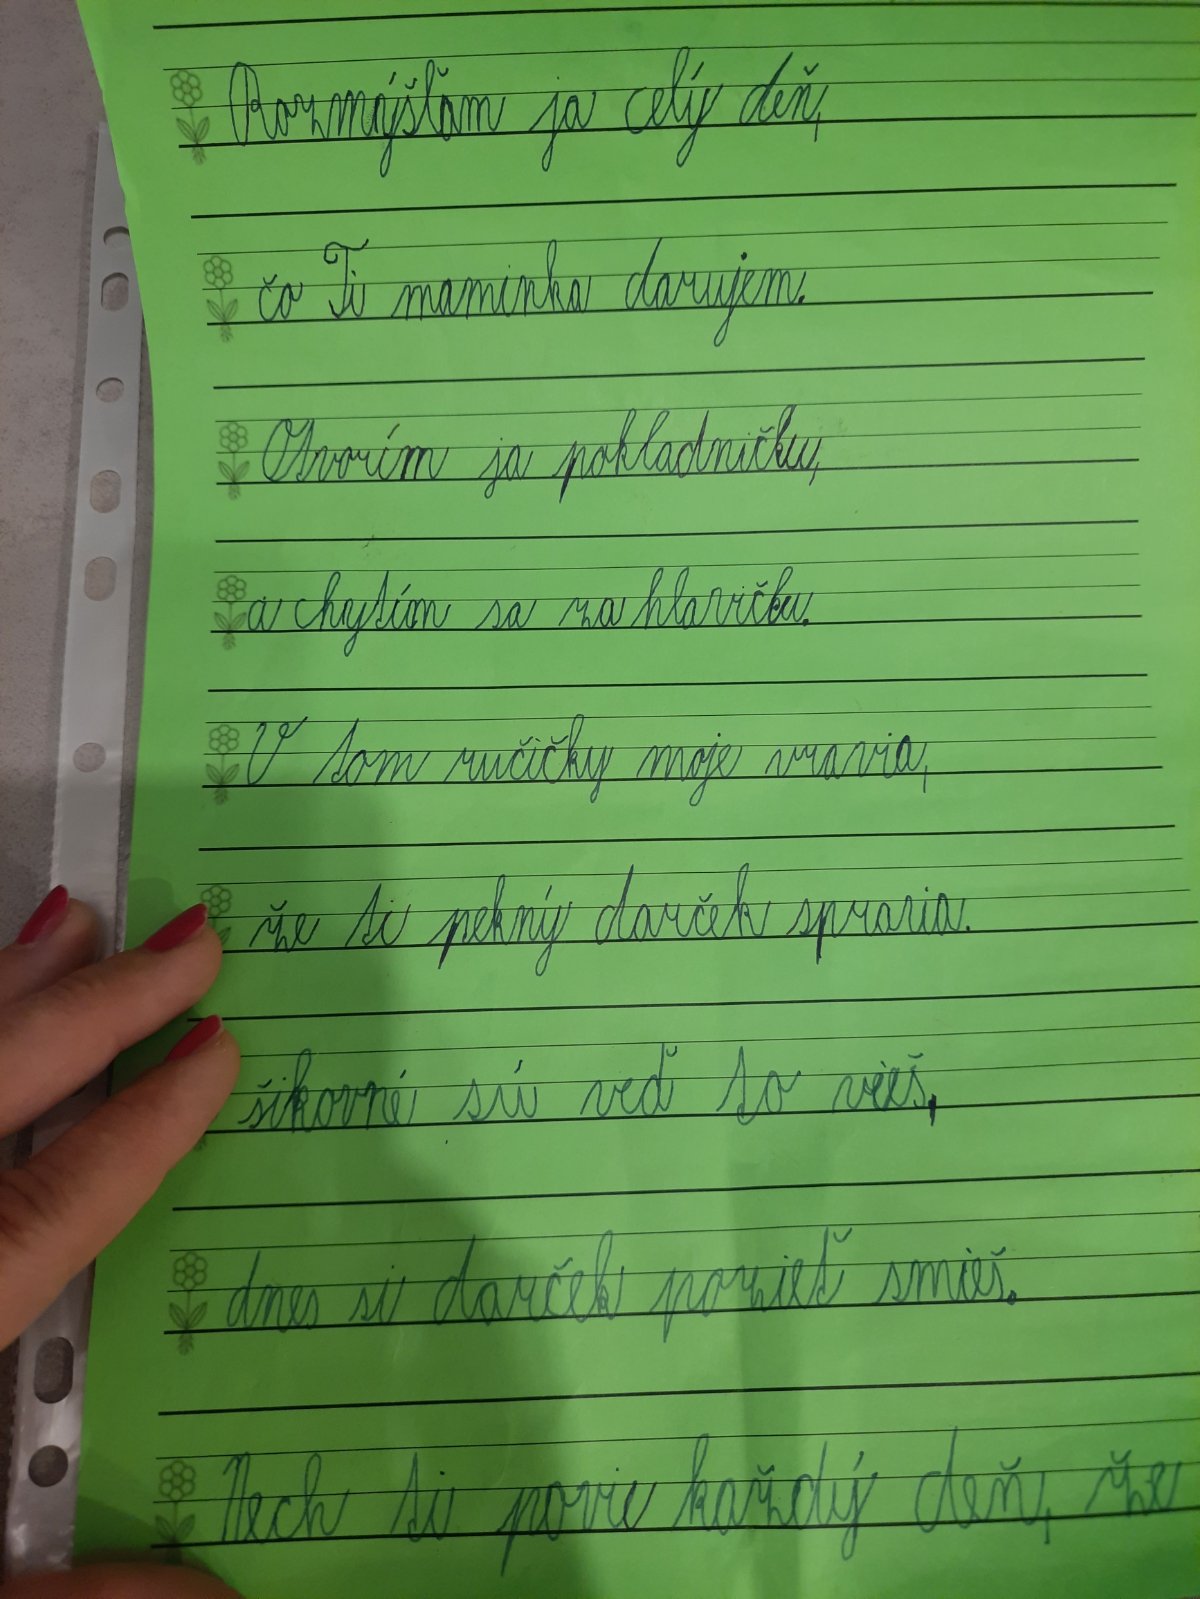 Rozmýšľam ja celý deň,
čo Ti maminka darujem.
Otvorím ja pokladničku,
a chytím sa za hlavičku.
V tom ručičky moje vravia,
že ti pekný darček spravia.
šikovné sú veď to vieš,
dnes si darček povieť smieš.
Nech ti povie každý deň, že